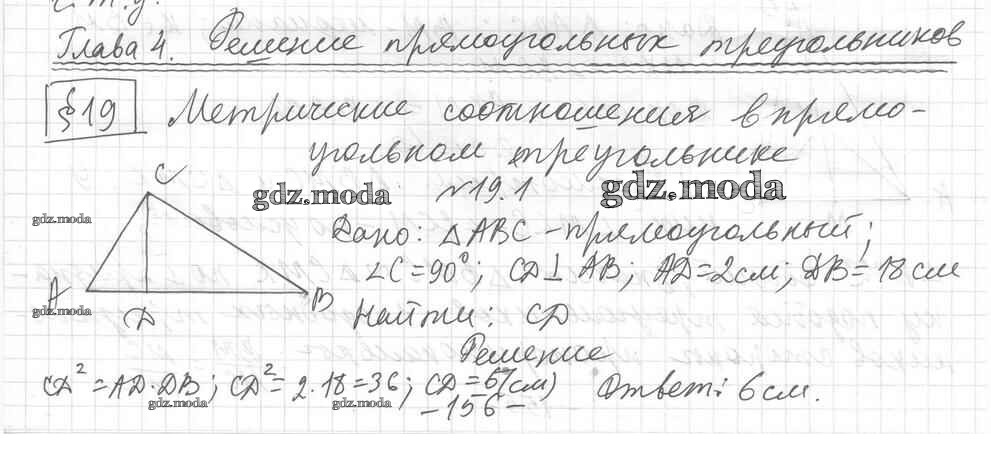 Глава 4. Решение прямоугольных треугольников
§ 19 Метрические соотношения в прямо-
угольном треугольнике
gdz.moda №19.1 gdz.moda
C
gdz.moda
Дано: △ABC - прямоугольный;
∠C=90°; CD⊥AB; AD=2см; DB=18см
A D B
gdz.moda
Найти: CD
Решение
CD²=AD·DB; CD²=2·18=36; CD=6(см) Ответ: 6 см.
gdz.moda gdz.moda
-156-